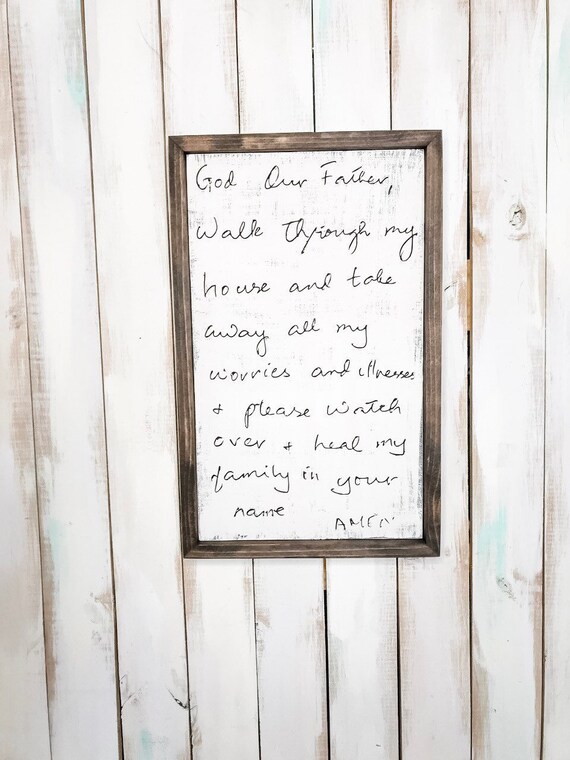 God Our Father,
Walk through my
house and take
away all my
worries and illnesses
& please watch
over & heal my
family in your
name
AMEN